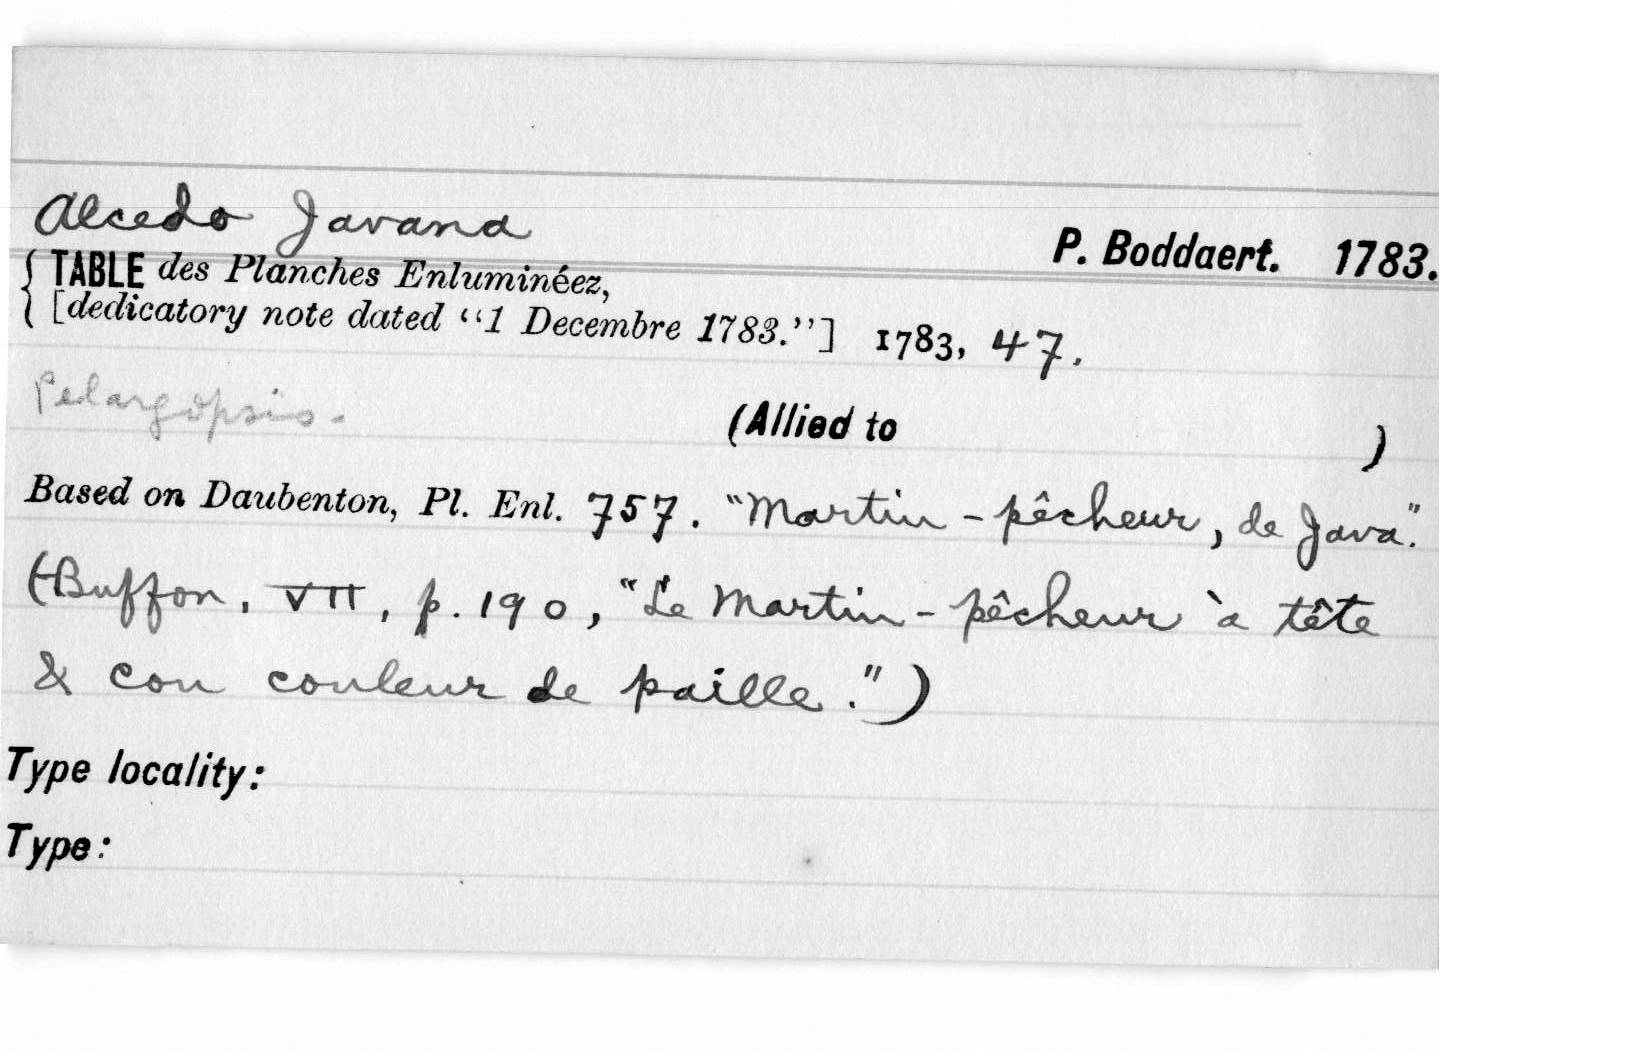 Alcedo Javana
P. Boddaert. 1783.
TABLE des Planches Enluminéez,
[dedicatory note dated “1 Decembre 1783.”] 1783, 47.
Pelargopsis.
(Allied to )
Based on Daubenton, Pl. Enl. 757. "Martin-pêcheur, de Java".
(Buffon, VII, p. 190, "Le Martin-pêcheur à tête
& cou couleur de paille.")
Type locality:
Type: